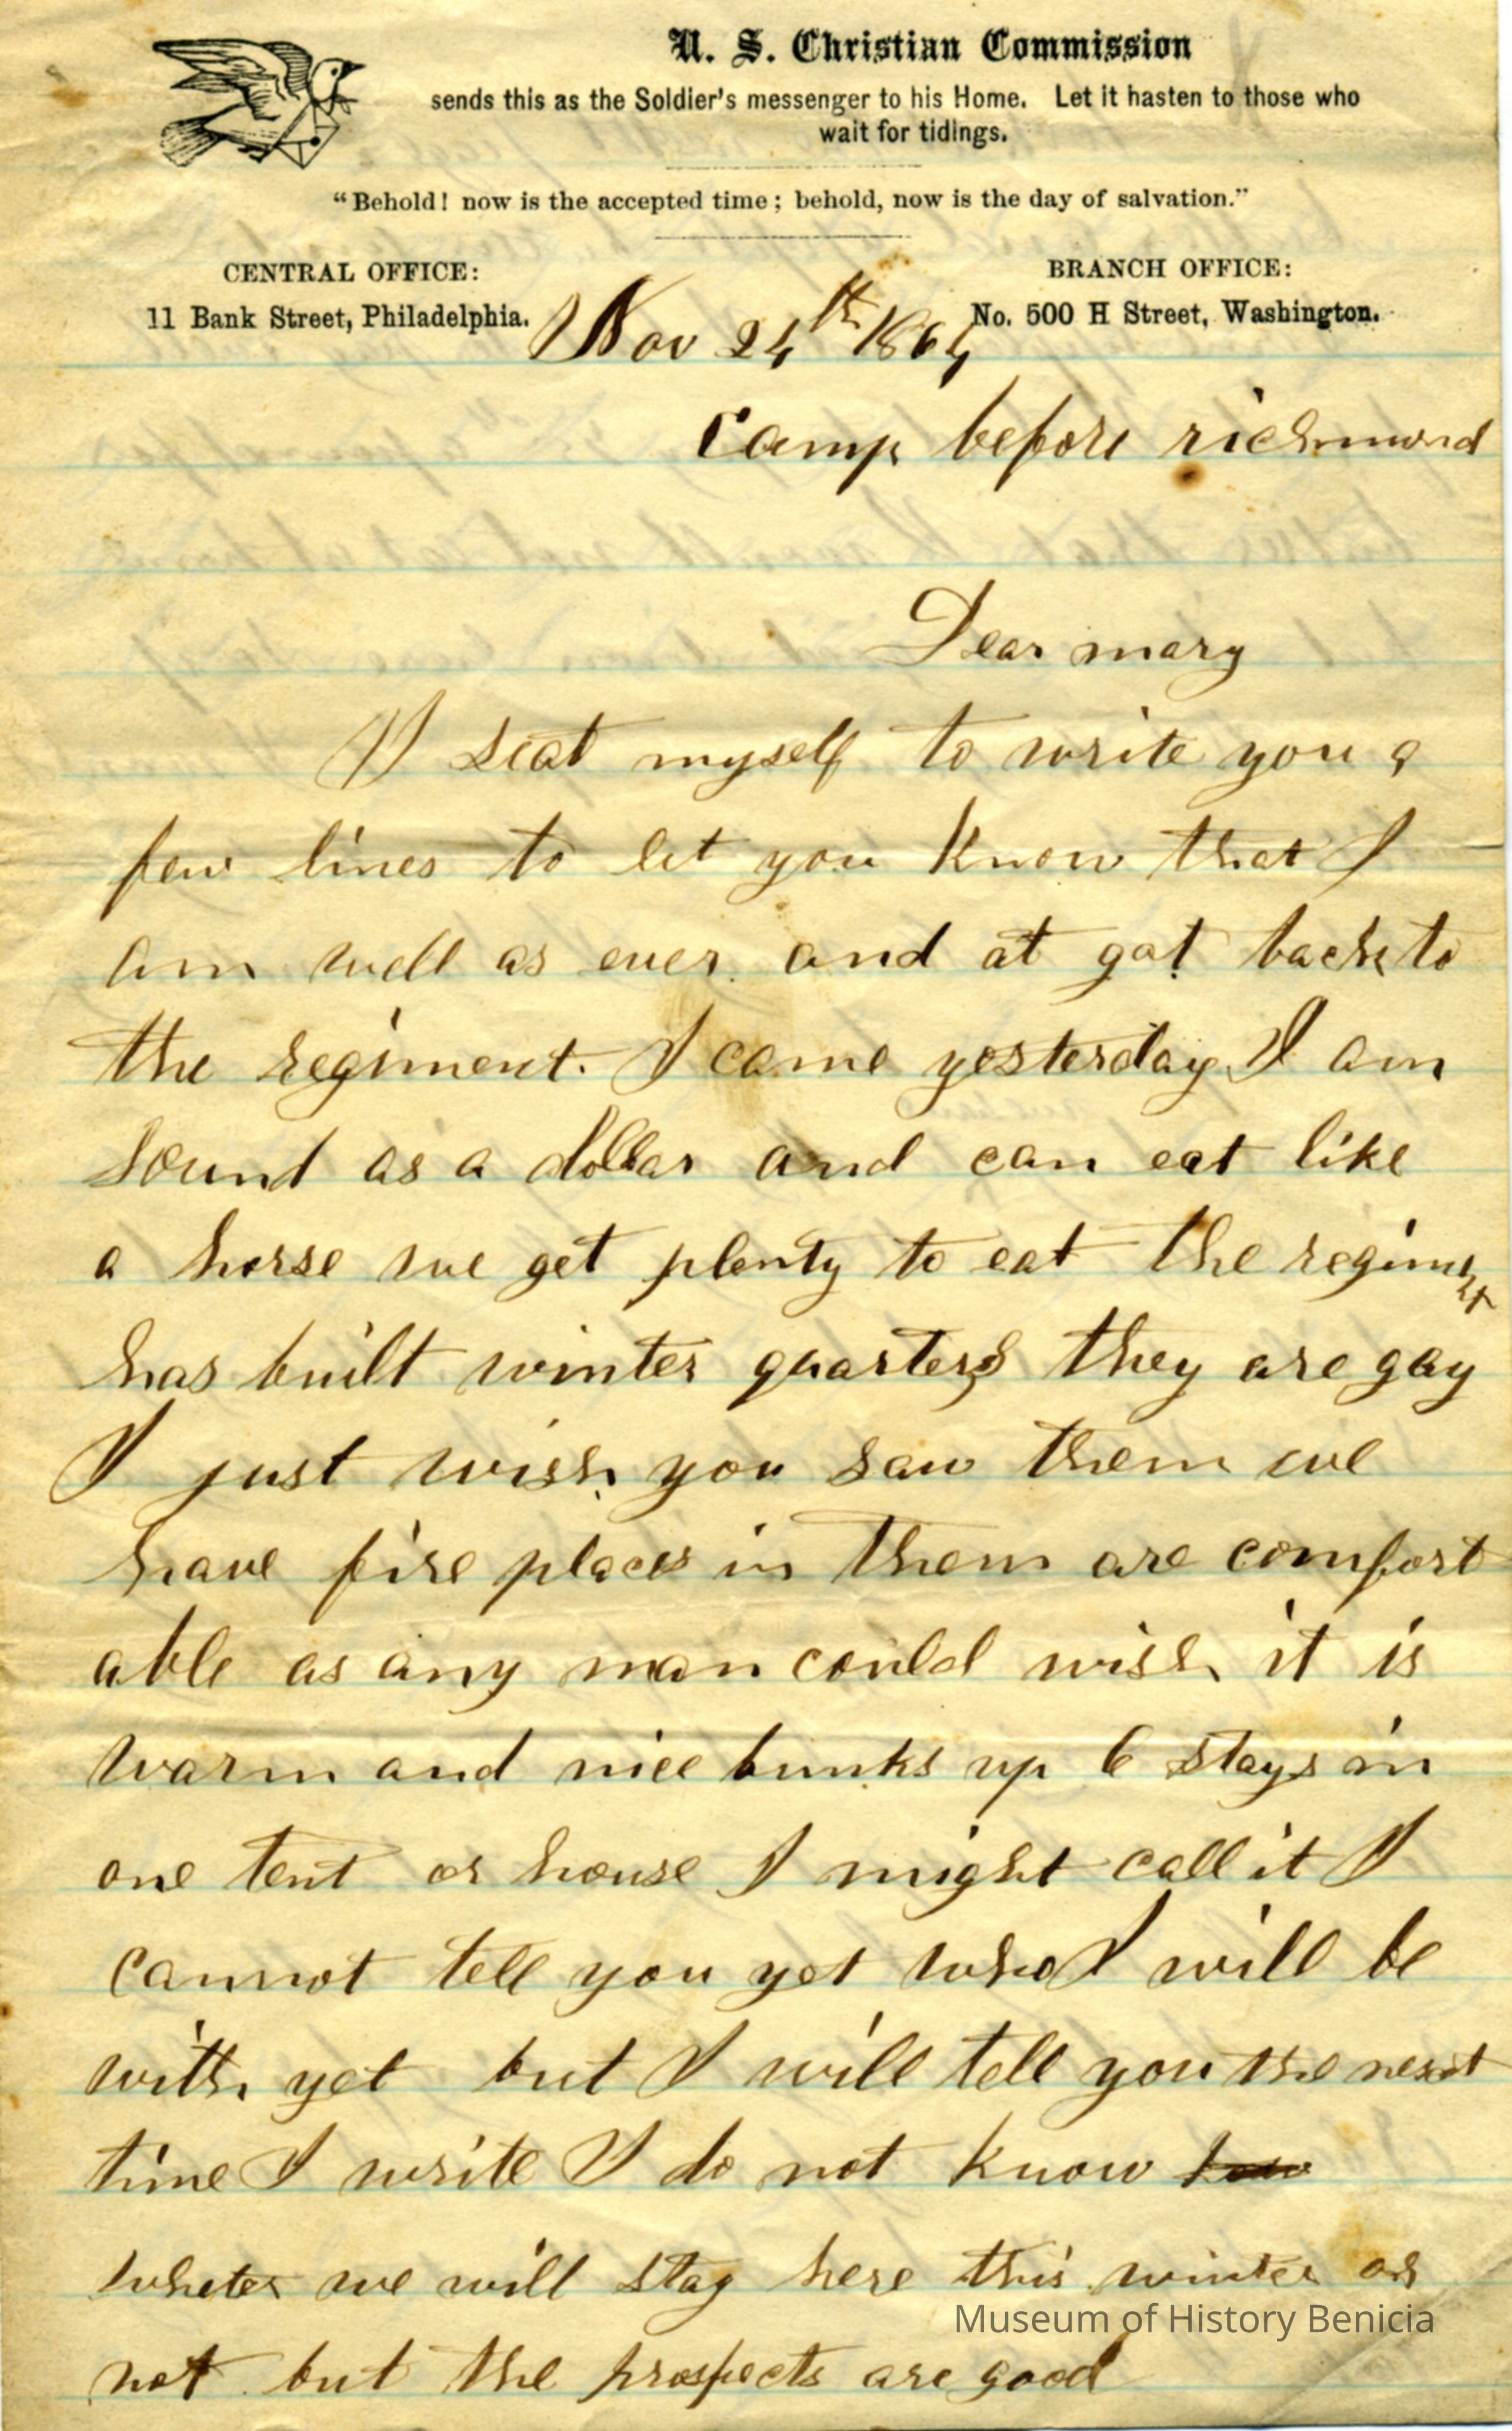 U. S. Christian Commission
sends this as the Soldier's messenger to his Home. Let it hasten to those who
wait for tidings.
"Behold! now is the accepted time; behold, now is the day of salvation."
CENTRAL OFFICE:
11 Bank Street, Philadelphia.
BRANCH OFFICE:
No. 500 H Street, Washington.
Nov 24th 1864
Camp before richmond
Dear mary
I seat myself to write you a
few lines to let you know that I
am well as ever and at got back to
the regiment. I came yesterday I am
sound as a dollar and can eat like
a horse we get plenty to eat the regiment
has built winter quarters they are gay
I just wish you saw them we
have fire places in them are comfort
able as any man could wish it is
warm and nice bunks up 6 stays in
one tent or house I might call it I
cannot tell you yet who I will be
with yet but I will tell you the next
time I write I do not know
wheter we will stay here this winter or
not but the prospects are good
Museum of History Benicia